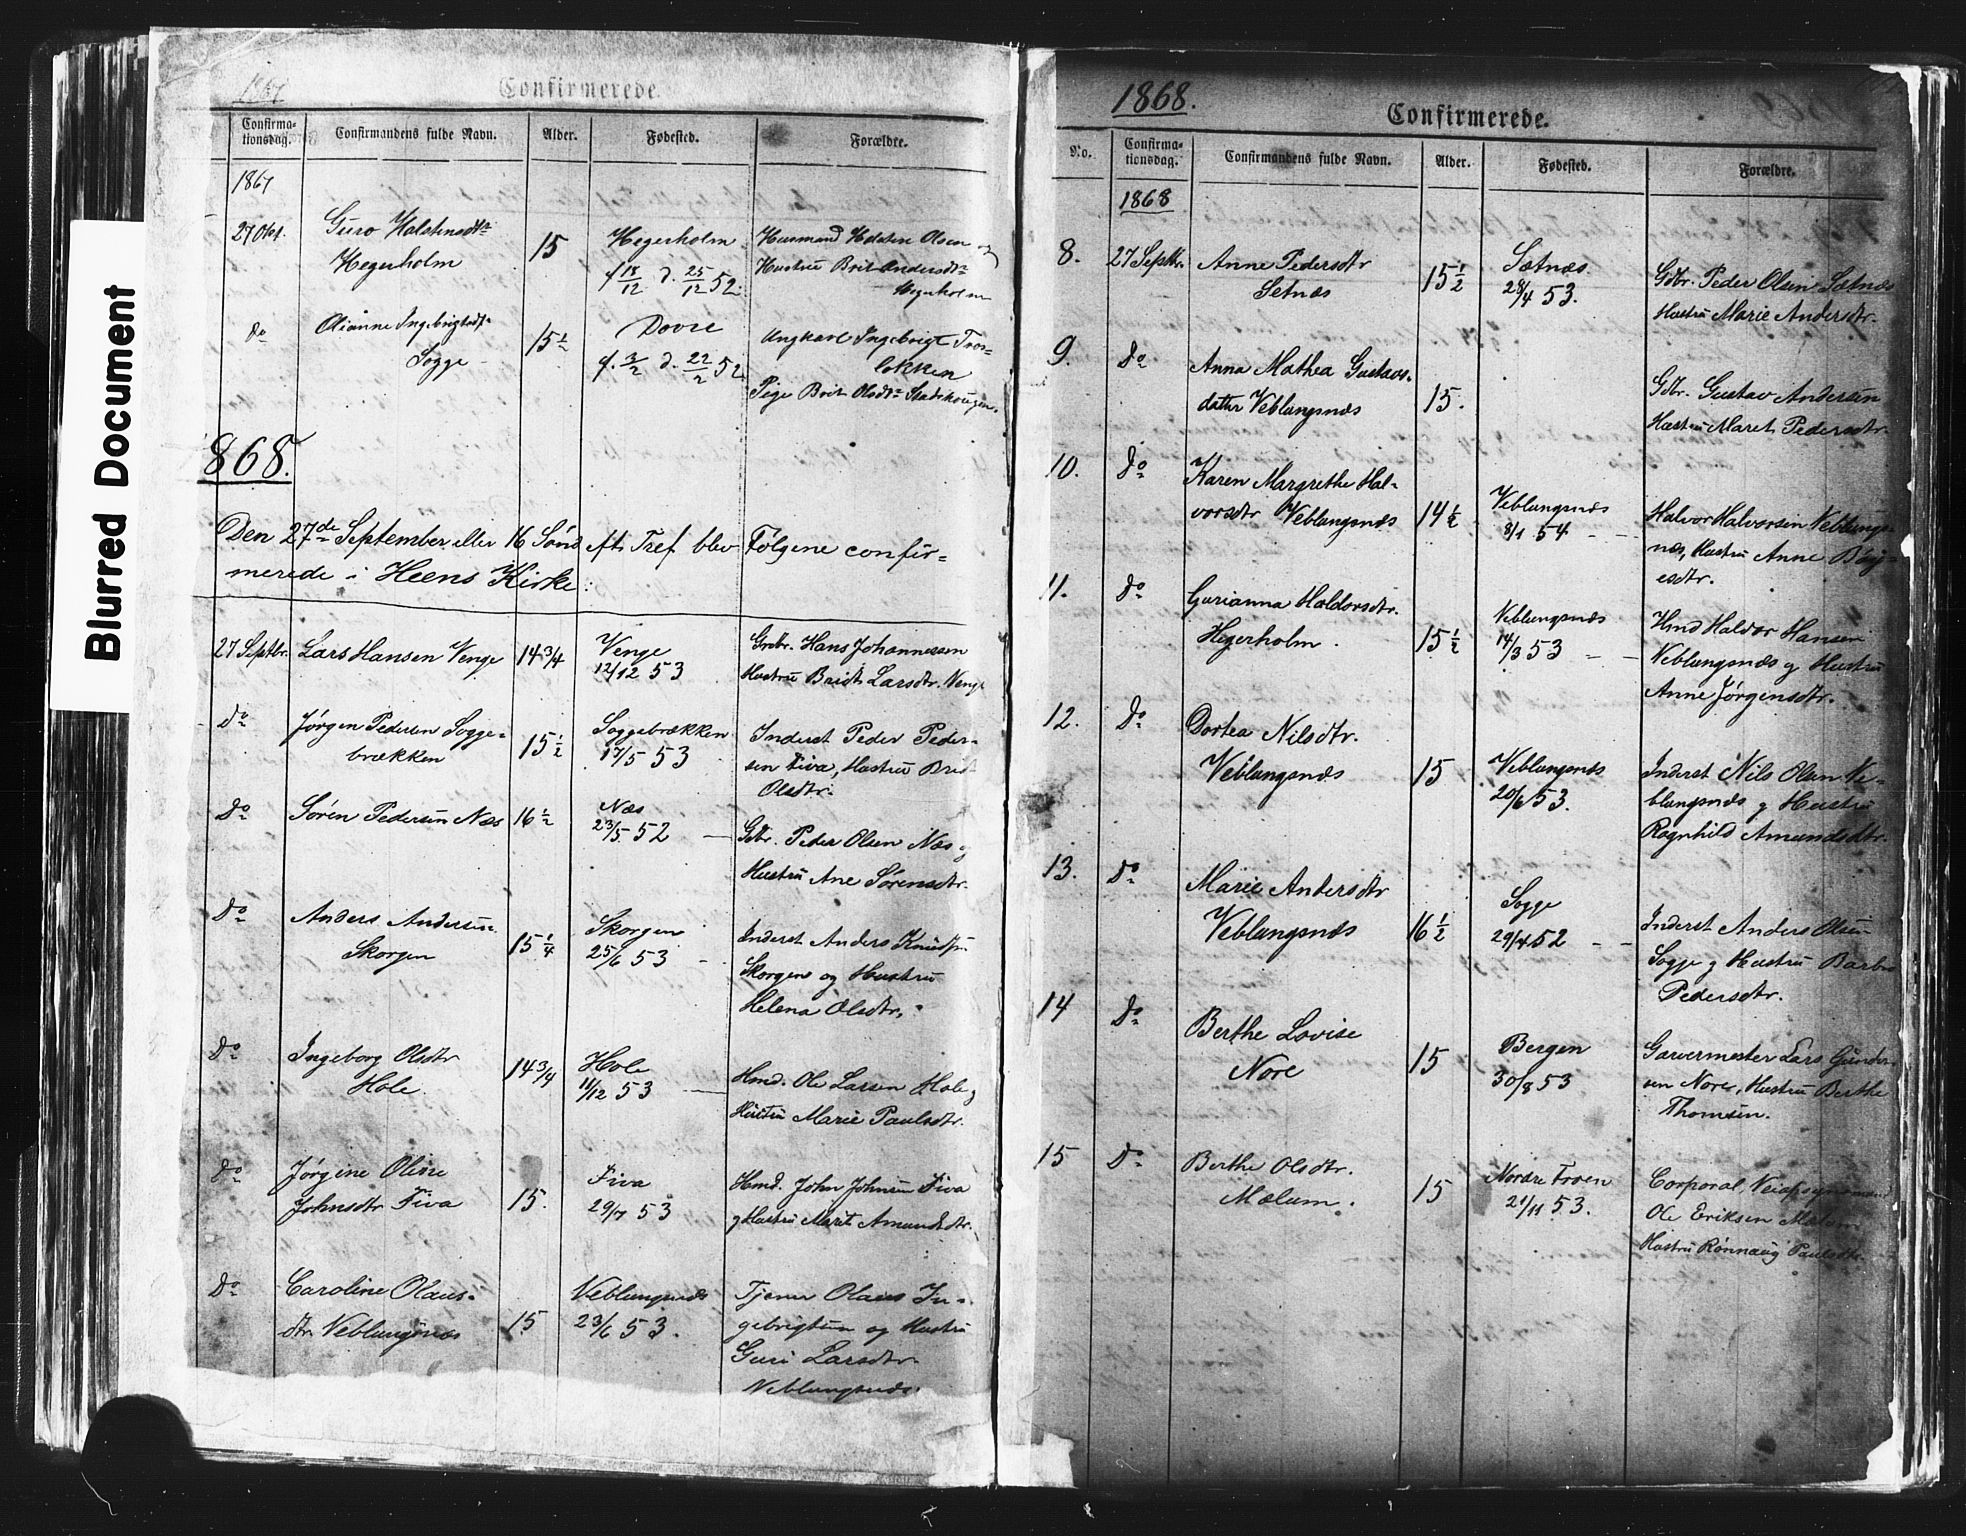 Blurred Document
1867
Confirmerede.
Confirma-
tionsdag.
Confirmandens fulde Navn.
Alder.
Fødested.
Forældre.
1867
27 Okt.
Guro Halstensdtr
Hegerholm
15
Hegerholm
f 18/12 d. 25/12 52.
Husmand Holsten Olsen og
Hustru Brit Andersdtr
Hegerholm
Do
Olianne Ingebrigtsdtr
Sogge
15 1/2
Dovre
f. 3/2 d. 22/2 52
Ungkarl Ingebrigt Tros-
lokken
Pige Brit Olsdtr
868.
Den 27de September eller 16 Sønd eft. Tref blev Følgene confir-
merede i Heens Kirke.
27 Septbr.
Lars Hansen Venge
14 3/4
Venge
12/12 53
Grdbr. Hans Johannessen
Hustru Brit Larsdtr. Venge
Do
Jørgen Pedersen Sogge-
brækken
15 1/2
Soggebrækken
17/5 53
Inderst Peder Peder-
sen Fiva, Hustru Brit
Olsdtr.
Do
Søren Pedersen Næs
16 1/2
Næs
23/5 52
Gdbr. Peder Olsen Næs og
Hustru Ane Sørensdtr.
Do
Anders Andersen
Skorgen
15 1/4
Skorgen
25/6 53
Inderst Anders Knudsen
Skorgen og Hustru
Helena Olsdtr.
Do
Ingeborg Olsdtr
Hole
14 3/4
Hole
11/12 53
Hmd. Ole Larsen Hole og
Hustru Marie Paulsdtr.
Do
Jørgine Oline
Johnsdtr Fiva
15.
Fiva
29/7 53
Hmd. John Johnsen Fiva
g Hustru Marit Amundsdtr.
Do
Caroline Olaus-
dtr. Veblungsnæs
15
Veblungsnæs
23/6 53.
Tjener Olaus In-
gebrigtsen og Hustru
Guri Larsdtr.
Veblungsnæs.
1868.
Confirmerede.
No.
Confirma-
tionsdag.
Confirmandens fulde Navn.
Alder.
Fødested.
Forældre.
1868
8.
27 Septbr.
Anne Pedersdtr
Setnæs
15 1/2
Sætnæs
28/4 53.
Gdbr. Peder Olsen Sætnæs
Hustru Marie Andersdtr.
9.
Do
Anna Mathea Gustavs-
datter Veblungsnæs
15.
Gdbr. Gustav Andersen
Hustru Maret Pedersdtr.
10.
Do
Karen Margrethe Hal-
vorsdtr Veblungsnæs
14 1/2
Veblungsnæs
8/1 54
Halvor Halvorsen Veblungs-
næs, Hustru Anne Børg-
esdtr.
11.
Do
Gurianna Haldorsdtr.
Hegerholm.
15 1/2
Veblungsnæs
14/3 53
Hmd Haldor Hansen
Veblungsnæs g Hustru
Anne Jørgensdtr.
12.
Do
Dortea Nilsdtr.
Veblungsnæs
15
Veblungsnæs
20/6 53.
Inderst Nils Olsen Ve-
blungsnæs g Hustru
Ragnhild Amundsdtr.
13.
Do
Marie Andersdtr
Veblungsnæs
16 1/2
Sogge
29/4 52
Inderst Anders Olsen
Sogge g Hustru Barbro
Pedersdtr.
14
Do
Berthe Lovise
Nore
15
Bergen
30/8 53
Garvermester Lars Gunder-
sen Nore, Hustru Berthe
Thomsen.
15
Do
Berthe Olsdtr.
Mælum.
15
Nordre Froen
21/11 53.
Corporal,
Ole Eriksen Mælum
Hustru Rønnaug Paulsdtr.